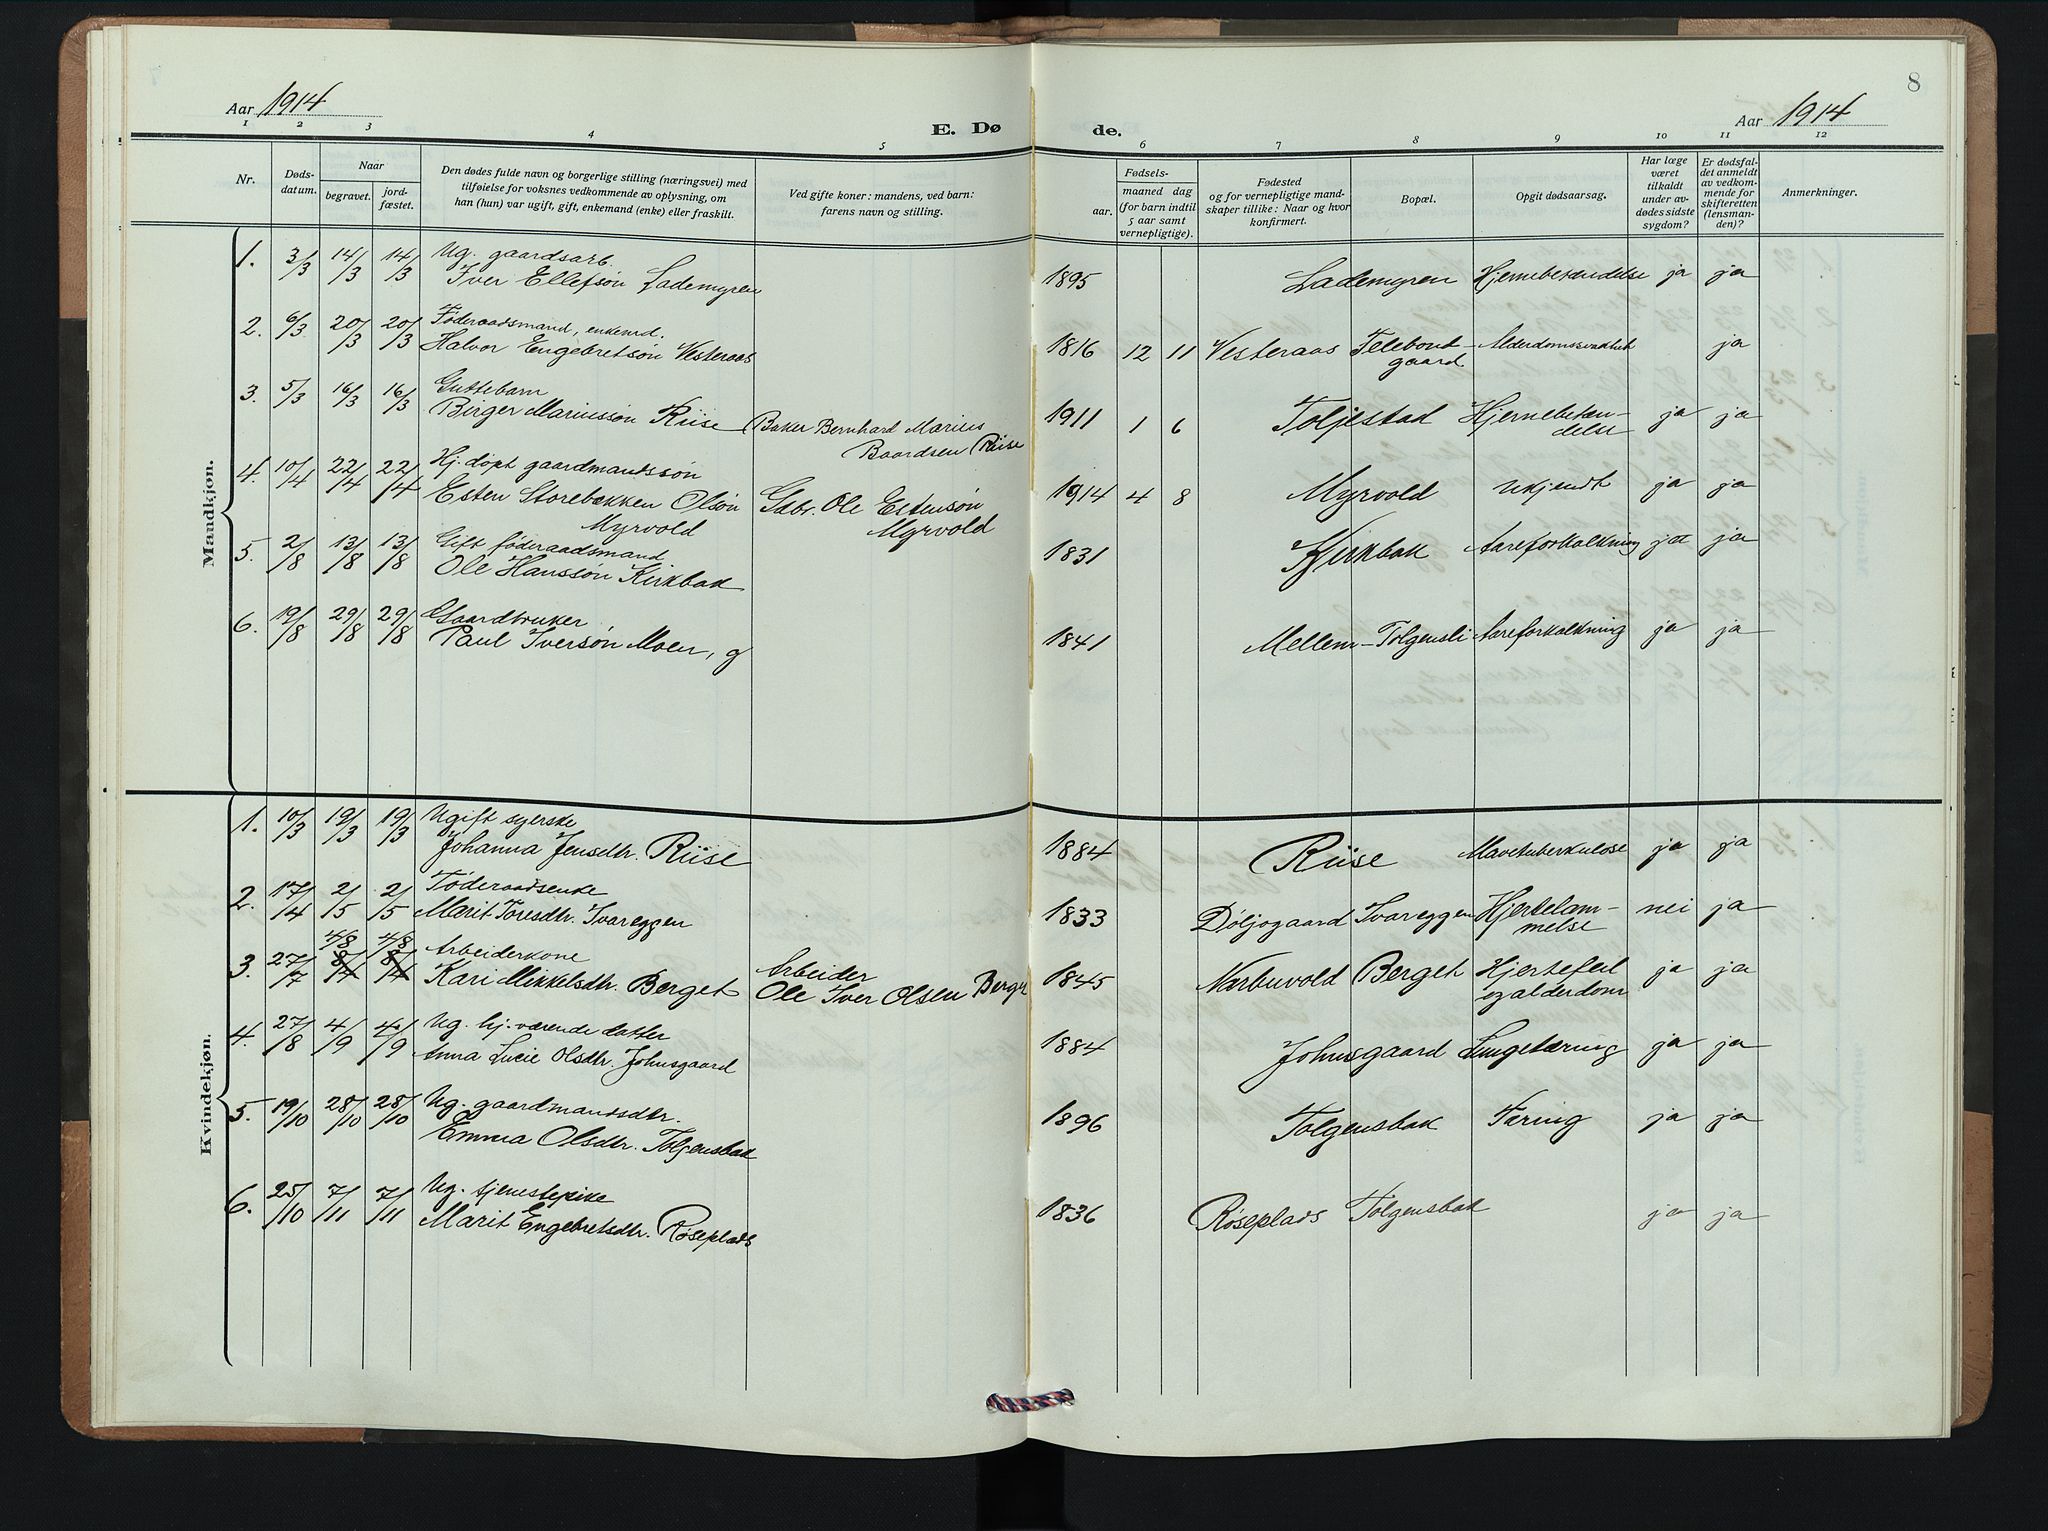 8
Aar 1914
Aar 1914
E. Dø de.
1 2 3 4 5 6 7 8 9 10 11 12
Nr.
Døds-datum.
Naar
begravet.
jord-fæstet.
Den dødes fulde navn og borgerlige stilling (næringsvei) med
tilføielse for voksnes vedkommende av oplysning, om
han (hun) var ugift, gift, enkemand (enke) eller fraskilt.
Ved gifte koner: mandens, ved barn:
farens navn og stilling.
Fødsels-
aar.
maaned dag
(for barn indtil
5 aar samt
vernepligtige).
Fødested
og for vernepligtige mand-
skaper tillike: Naar og hvor
konfirmert.
Bopæl.
Opgit dødsaarsag.
Har læge
været
tilkaldt
under av-
dødes sidste
sygdom?
Er dødsfal-
det anmeldt
av vedkom-
mende for
skifteretten
(lensman-
den)?
Anmerkninger.
Mandkjøn.
1. 3/3 14/3 14/3 Ug. gaardsarb.
Iver Ellefsøn Lademyren 1895 Lademyren Hjernebetændelse ja ja
2. 6/3 20/3 20/3 Føderaadsmand, enkemd.
Halvor Engebretsøn Vesteraas 1816 12 11 Vesteraas Fellebond-
gaard Alderdomssvakhet ja
3. 5/3 16/3 16/3 Guttebarn
Birger Mariussøn Riise Baker Bernhard Marius
Baardsen Riise 1911 1 6 Toljestad Hjernebetæn-
delse ja ja
4. 10/4 22/4 22/4 Hj. døpt gaardmandssøn
Esten Storebækken Olsøn Gdbr. Ole Estensøn
Myrvold Myrvold 1914 4 8 Myrvold ukjendt ja ja
5. 2/8 13/8 13/8 Gift føderaadsmand
Ole Hanssøn Kirkbak 1831 Kirkbak Aareforkalkning ja ja
6. 19/8 29/8 29/8 Gaardbruker
Paul Iversøn Moen, g 1841 Mellem-Tolgensli Aareforkalkning ja ja
Kvindekjøn.
1. 10/3 19/3 19/3 Ugift syerske
Johanna Jensdtr. Riise 1884 Riise Mavetuberkulose ja ja
2. 17/14 2/5 2/5 Føderaadsenke
Marit Toresdtr. Svareggen 1833 Døljogaard Svareggen Hjertelam-
melse nei ja
4/8 4/8
3. 27/7 8/14 8/14 Arbeiderkone
Kari Mikkelsdtr. Berget Arbeider
Ole Iver Olsen Berget 1845 Narbuvold Berget Hjertefeil
og alderdom ja ja
4. 27/8 4/9 4/9 Ug. hj. værende datter
Anna Lucie Olsdtr. Johnsgaard 1884 Johnsgaard Lungetæring ja ja
5. 19/10 28/10 28/10 Ug. gaardmandsdtr.
Emma Olsdtr. Tolgensbak 1896 Tolgensbak Tæring ja ja
6. 25/10 7/11 7/11 Ug. tjenestepike
Marit Engebretsdtr. Røseplads 1836 Røseplads Tolgensbak ja ja